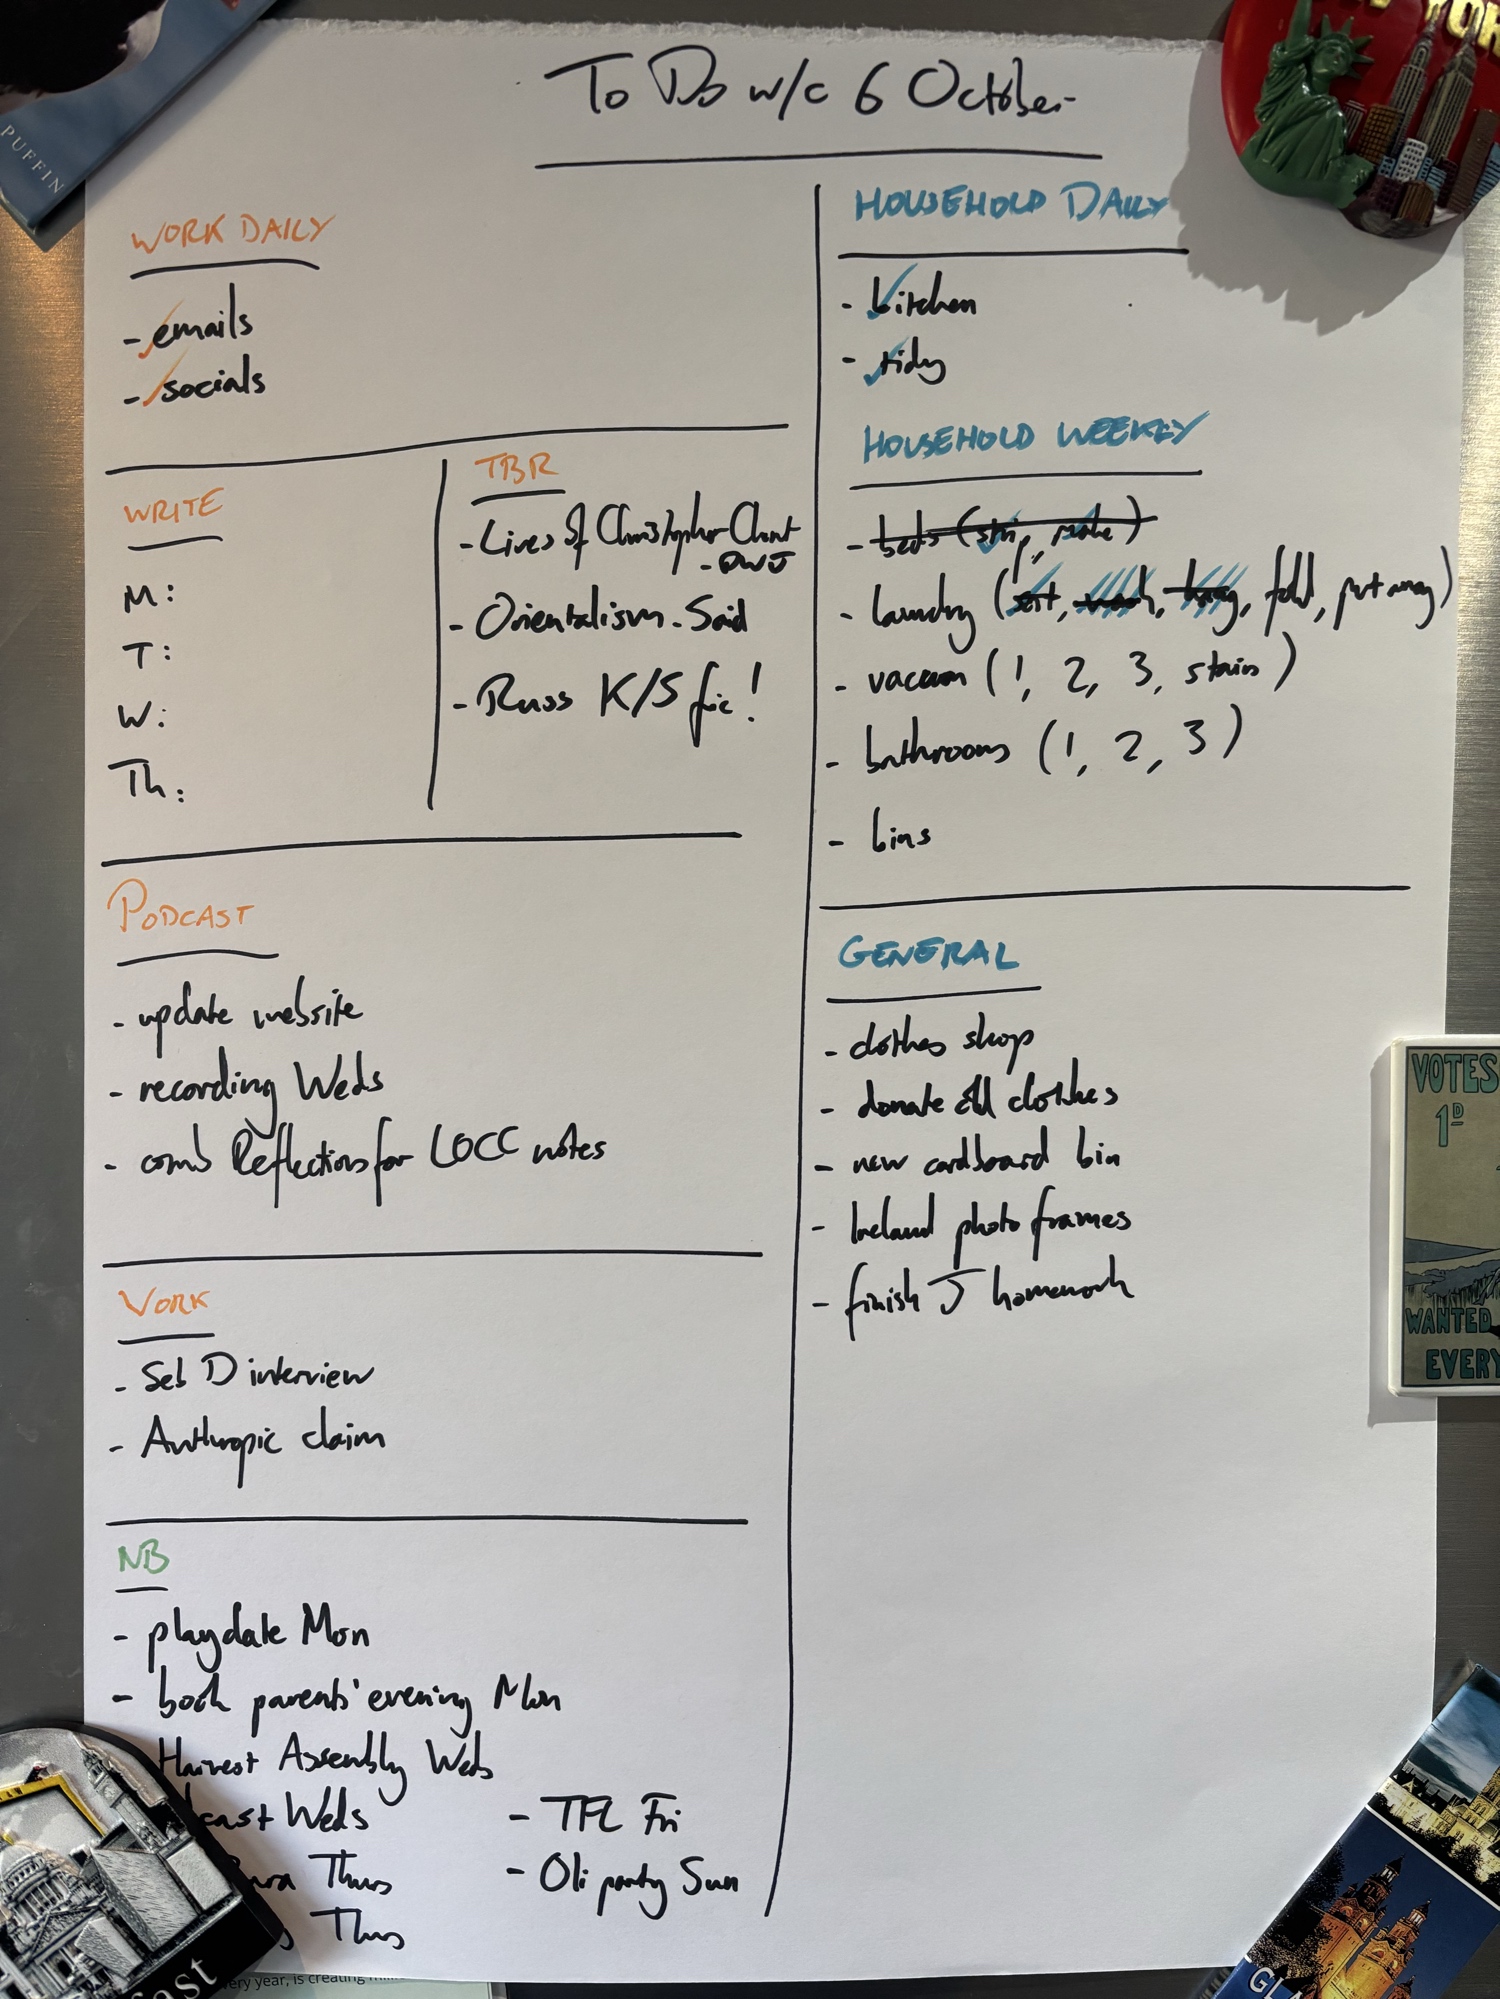 To Do w/c 6 October
WORK DAILY
- emails
- socials
WRITE
M:
T:
W:
Th:
TBR
- Lives of Christopher Chant
- DWJ
- Orientalism - Said
- Russ K/S fic!
PODCAST
- update website
- recording Weds
- comb Reflections for LOCC notes
WORK
- Seb D interview
- Anthropic claim
NB
- playdate Mon
- book parents' evening Mon
Harvest Assembly Weds
cast Weds
Thurs
Thurs
- TFL Fri
- Oli party Sun
HOUSEHOLD DAILY
- kitchen
- tidy
HOUSEHOLD WEEKLY
- beds (strip, make)
- laundry (sort, wash, hang, fold, put away)
- vacuum (1, 2, 3, stairs)
- bathrooms (1, 2, 3)
- bins
GENERAL
- clothes shop
- donate old clothes
- new cardboard bin
- Ireland photo frames
- finish J homework
PUFFIN
VOTES
1D
WANTED
EVERY
ast
ery year, is creating
GLA